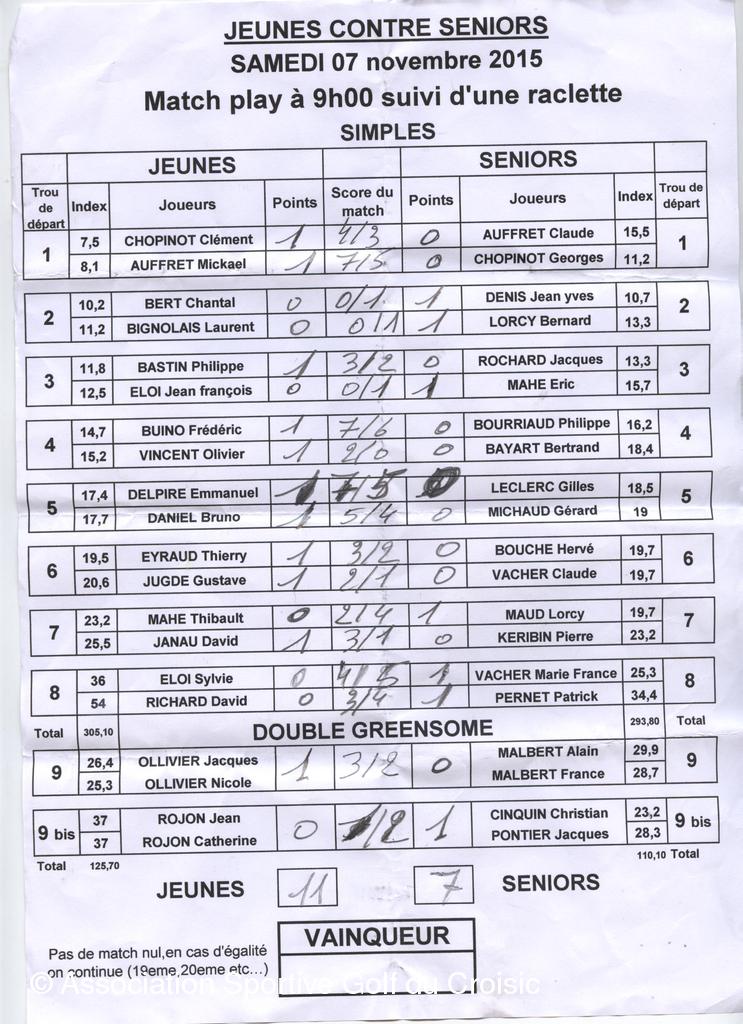 JEUNES CONTRE SENIORS
SAMEDI 07 novembre 2015
Match play à 9h00 suivi d'une raclette
SIMPLES
JEUNES SENIORS
Trou de départ Index Joueurs Points Score du match Points Joueurs Index Trou de départ
1 7,5 CHOPINOT Clément 1 4/3 0 AUFFRET Claude 15,5 1
8,1 AUFFRET Mickael 1 7/5 0 CHOPINOT Georges 11,2
2 10,2 BERT Chantal 0 0/1 1 DENIS Jean yves 10,7 2
11,2 BIGNOLAIS Laurent 0 0/1 1 LORCY Bernard 13,3
3 11,8 BASTIN Philippe 1 3/2 0 ROCHARD Jacques 13,3 3
12,5 ELOI Jean françois 0 0/1 1 MAHE Eric 15,7
4 14,7 BUINO Frédéric 1 7/6 0 BOURRIAUD Philippe 16,2 4
15,2 VINCENT Olivier 1 2/0 0 BAYART Bertrand 18,4
5 17,4 DELPIRE Emmanuel 1 7/5 0 LECLERC Gilles 18,5 5
17,7 DANIEL Bruno 1 5/4 0 MICHAUD Gérard 19
6 19,5 EYRAUD Thierry 1 3/2 0 BOUCHE Hervé 19,7 6
20,6 JUGDE Gustave 1 2/1 0 VACHER Claude 19,7
7 23,2 MAHE Thibault 0 2/4 1 MAUD Lorcy 19,7 7
25,5 JANAU David 1 3/1 0 KERIBIN Pierre 23,2
8 36 ELOI Sylvie 0 4/5 1 VACHER Marie France 25,3 8
54 RICHARD David 0 3/4 1 PERNET Patrick 34,4
Total 305,10 DOUBLE GREENSOME 293,80 Total
9 26,4 OLLIVIER Jacques 1 3/2 0 MALBERT Alain 29,9 9
25,3 OLLIVIER Nicole MALBERT France 28,7
9 bis 37 ROJON Jean 0 1/2 1 CINQUIN Christian 23,2 9 bis
37 ROJON Catherine PONTIER Jacques 28,3
Total 125,70 110,10 Total
JEUNES 11 7 SENIORS
VAINQUEUR
Pas de match nul,en cas d'égalité
on continue (19eme,20eme etc...)
© Association Sportive Golf du Croisic